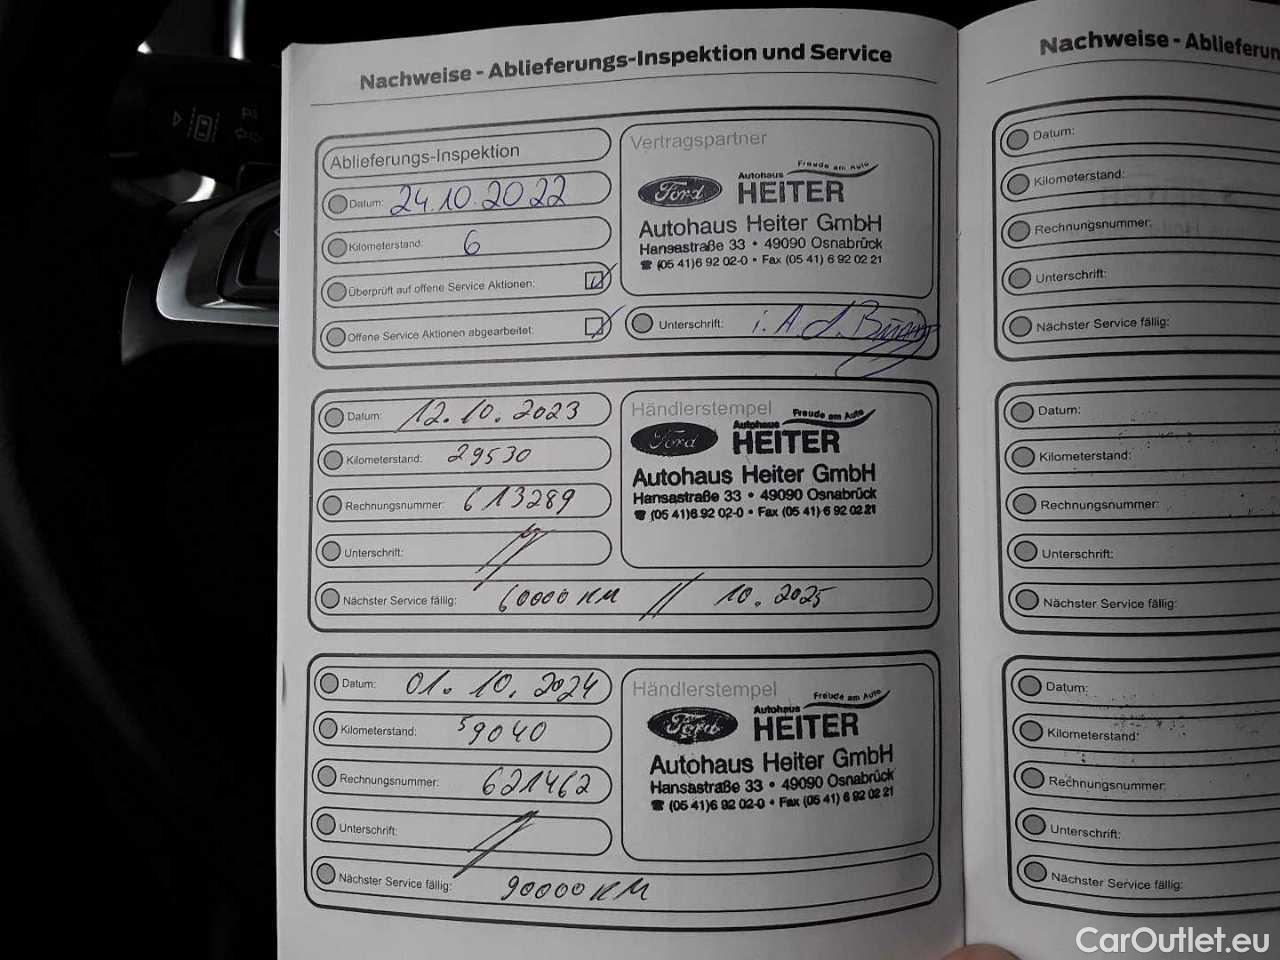 Nachweise - Ablieferungs-Inspektion und Service
Ablieferungs-Inspektion
Datum: 24.10.2022
Kilometerstand: 6
Überprüft auf offene Service Aktionen:
Offene Service Aktionen abgearbeitet:
Vertragspartner
Freude am Auto
Ford Autohaus
HEITER
Autohaus Heiter GmbH
Hansastraße 33 • 49090 Osnabrück
☎ (05 41)6 92 02-0 • Fax (05 41) 6 92 02 21
Unterschrift: i. A.
Datum: 12.10.2023
Kilometerstand: 29530
Rechnungsnummer: 613289
Unterschrift:
Händlerstempel
Freude am Auto
Ford Autohaus
HEITER
Autohaus Heiter GmbH
Hansastraße 33 • 49090 Osnabrück
☎ (05 41)6 92 02-0 • Fax (05 41) 6 92 02 21
Nächster Service fällig: 60000 KM // 10.2025
Datum: 01.10.2024
Kilometerstand: 59040
Rechnungsnummer: 621462
Unterschrift:
Händlerstempel
Freude am Auto
Ford Autohaus
HEITER
Autohaus Heiter GmbH
Hansastraße 33 • 49090 Osnabrück
☎ (05 41)6 92 02-0 • Fax (05 41) 6 92 02 21
Nächster Service fällig: 90000 KM
Nachweise - Ablieferun
Datum:
Kilometerstand:
Rechnungsnummer:
Unterschrift:
Nächster Service fällig:
Datum:
Kilometerstand:
Rechnungsnummer:
Unterschrift:
Nächster Service fällig:
Datum:
Kilometerstand:
Rechnungsnummer:
Unterschrift:
Nächster Service fällig:
CarOutlet.eu